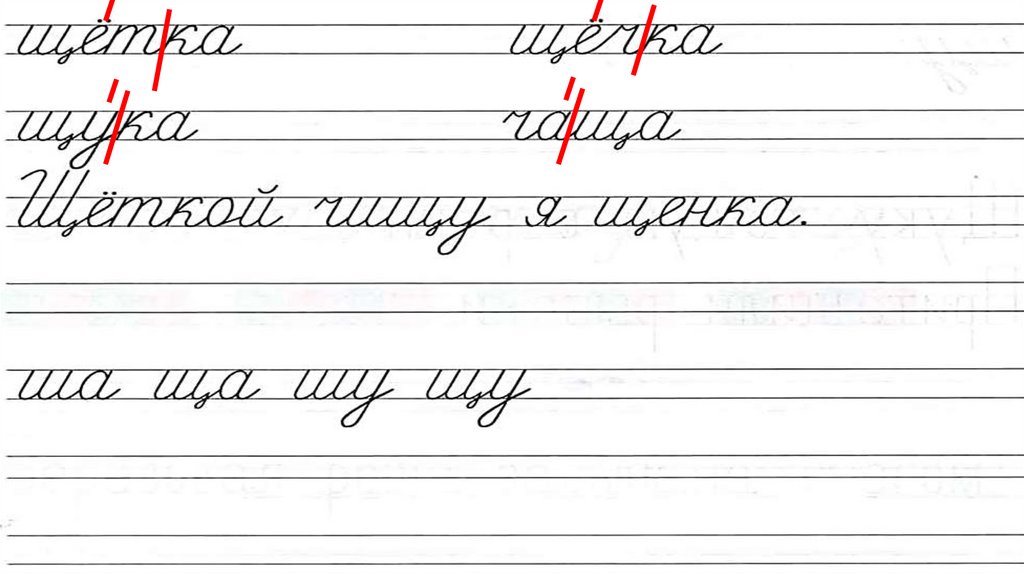 щётка щёчка
щука чаща
Щёткой чищу я щенка.
ша ща шу щу